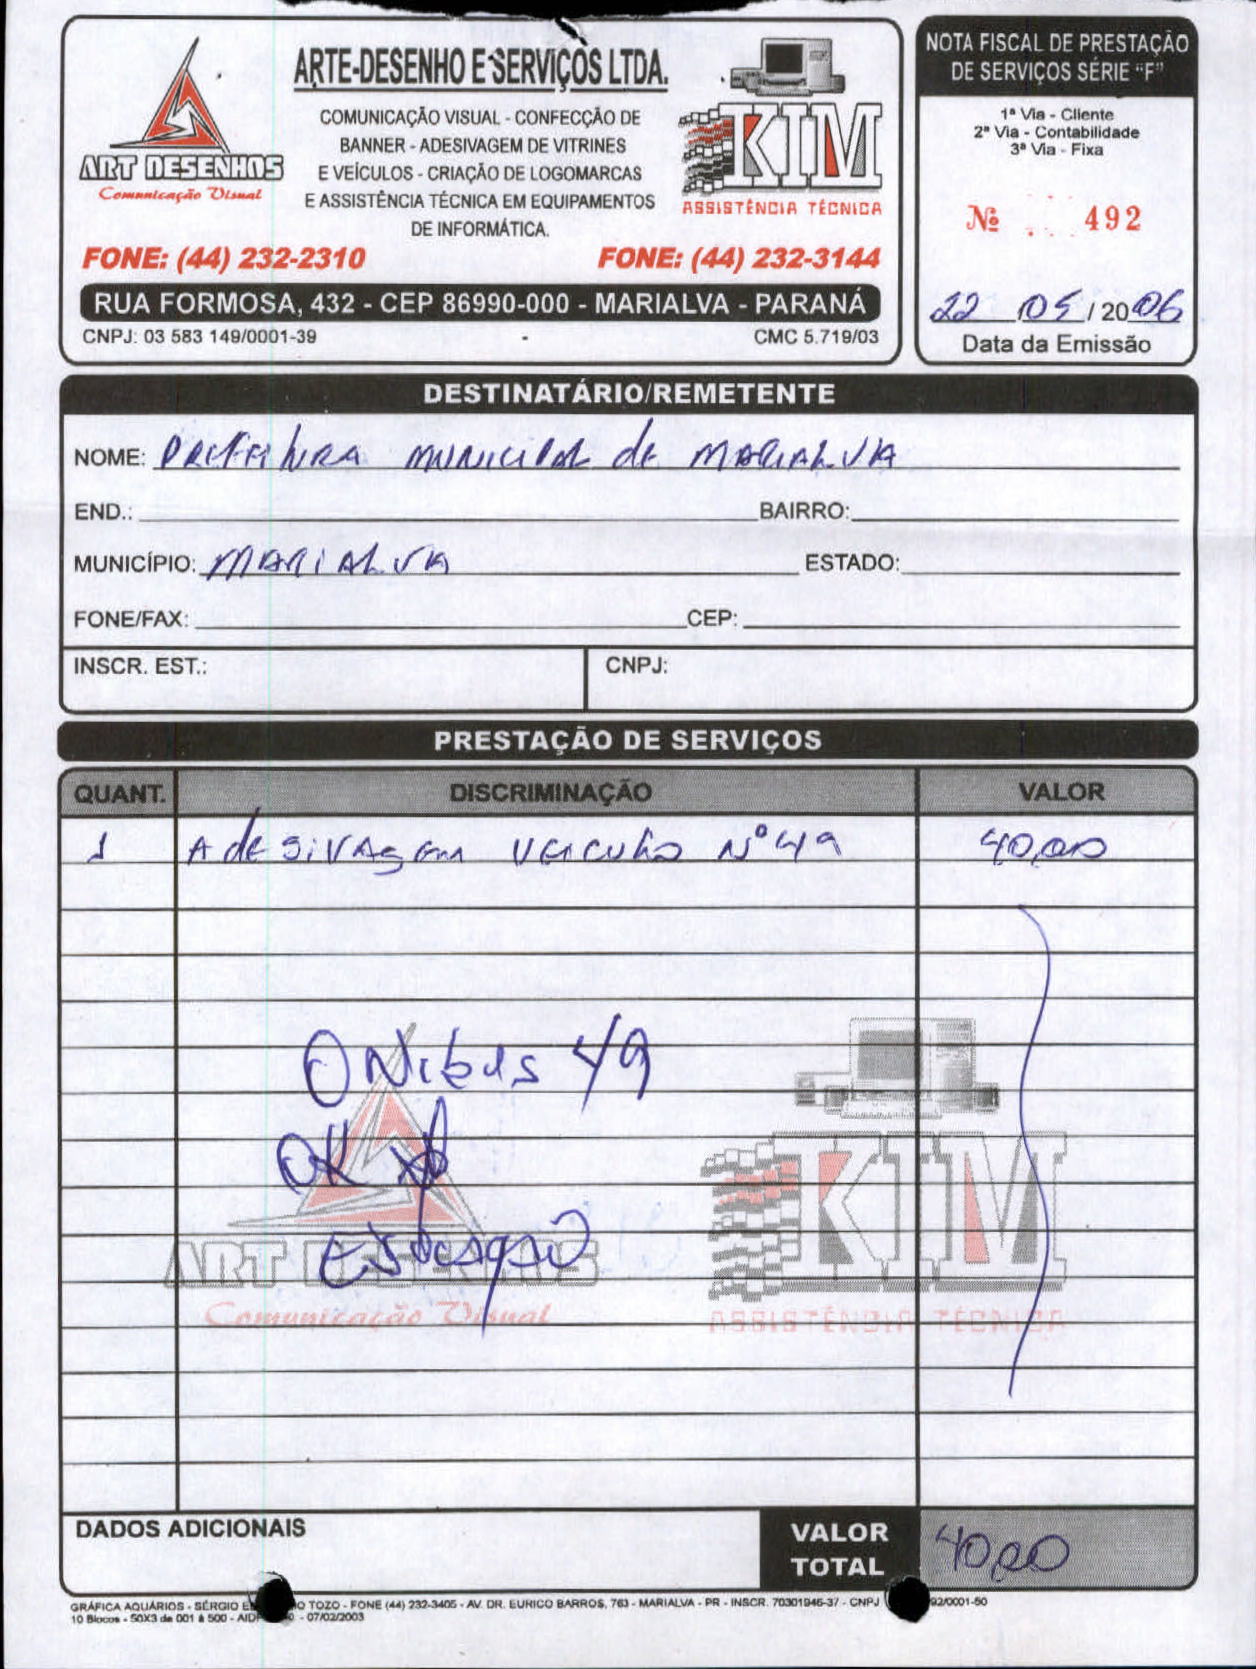 ARTE-DESENHO E SERVIÇOS LTDA.
COMUNICAÇÃO VISUAL - CONFECÇÃO DE
BANNER - ADESIVAGEM DE VITRINES
E VEÍCULOS - CRIAÇÃO DE LOGOMARCAS
E ASSISTÊNCIA TÉCNICA EM EQUIPAMENTOS
DE INFORMÁTICA.
ART DESENHOS
Comunicação Visual
KIM
ASSISTÊNCIA TÉCNICA
FONE: (44) 232-2310
FONE: (44) 232-3144
RUA FORMOSA, 432 - CEP 86990-000 - MARIALVA - PARANÁ
CNPJ: 03 583 149/0001-39
CMC 5.719/03
NOTA FISCAL DE PRESTAÇÃO
DE SERVIÇOS SÉRIE "F"
1ª Via - Cliente
2ª Via - Contabilidade
3ª Via - Fixa
Nº 492
22 05 / 2006
Data da Emissão
DESTINATÁRIO/REMETENTE
NOME: PREFEITURA MUNICIPAL de MARIALVA
END.: BAIRRO:
MUNICÍPIO: MARIALVA ESTADO:
FONE/FAX: CEP:
INSCR. EST.: CNPJ:
PRESTAÇÃO DE SERVIÇOS
QUANT. DISCRIMINAÇÃO VALOR
1 AdESiVAgEm VEiCULO Nº 49 40,00
ONibus 49
OK
Educação
ART DESENHOS
Comunicação Visual
KIM
ASSISTÊNCIA TÉCNICA
DADOS ADICIONAIS
VALOR
TOTAL
40,00
GRÁFICA AQUÁRIOS - SÉRGIO TOZO - FONE (44) 232-3405 - AV. DR. EURICO BARROS, 763 - MARIALVA - PR - INSCR. 70301946-37 - CNPJ 92/0001-50
10 Blocos - 50X3 de 001 à 500 - - 07/02/2003